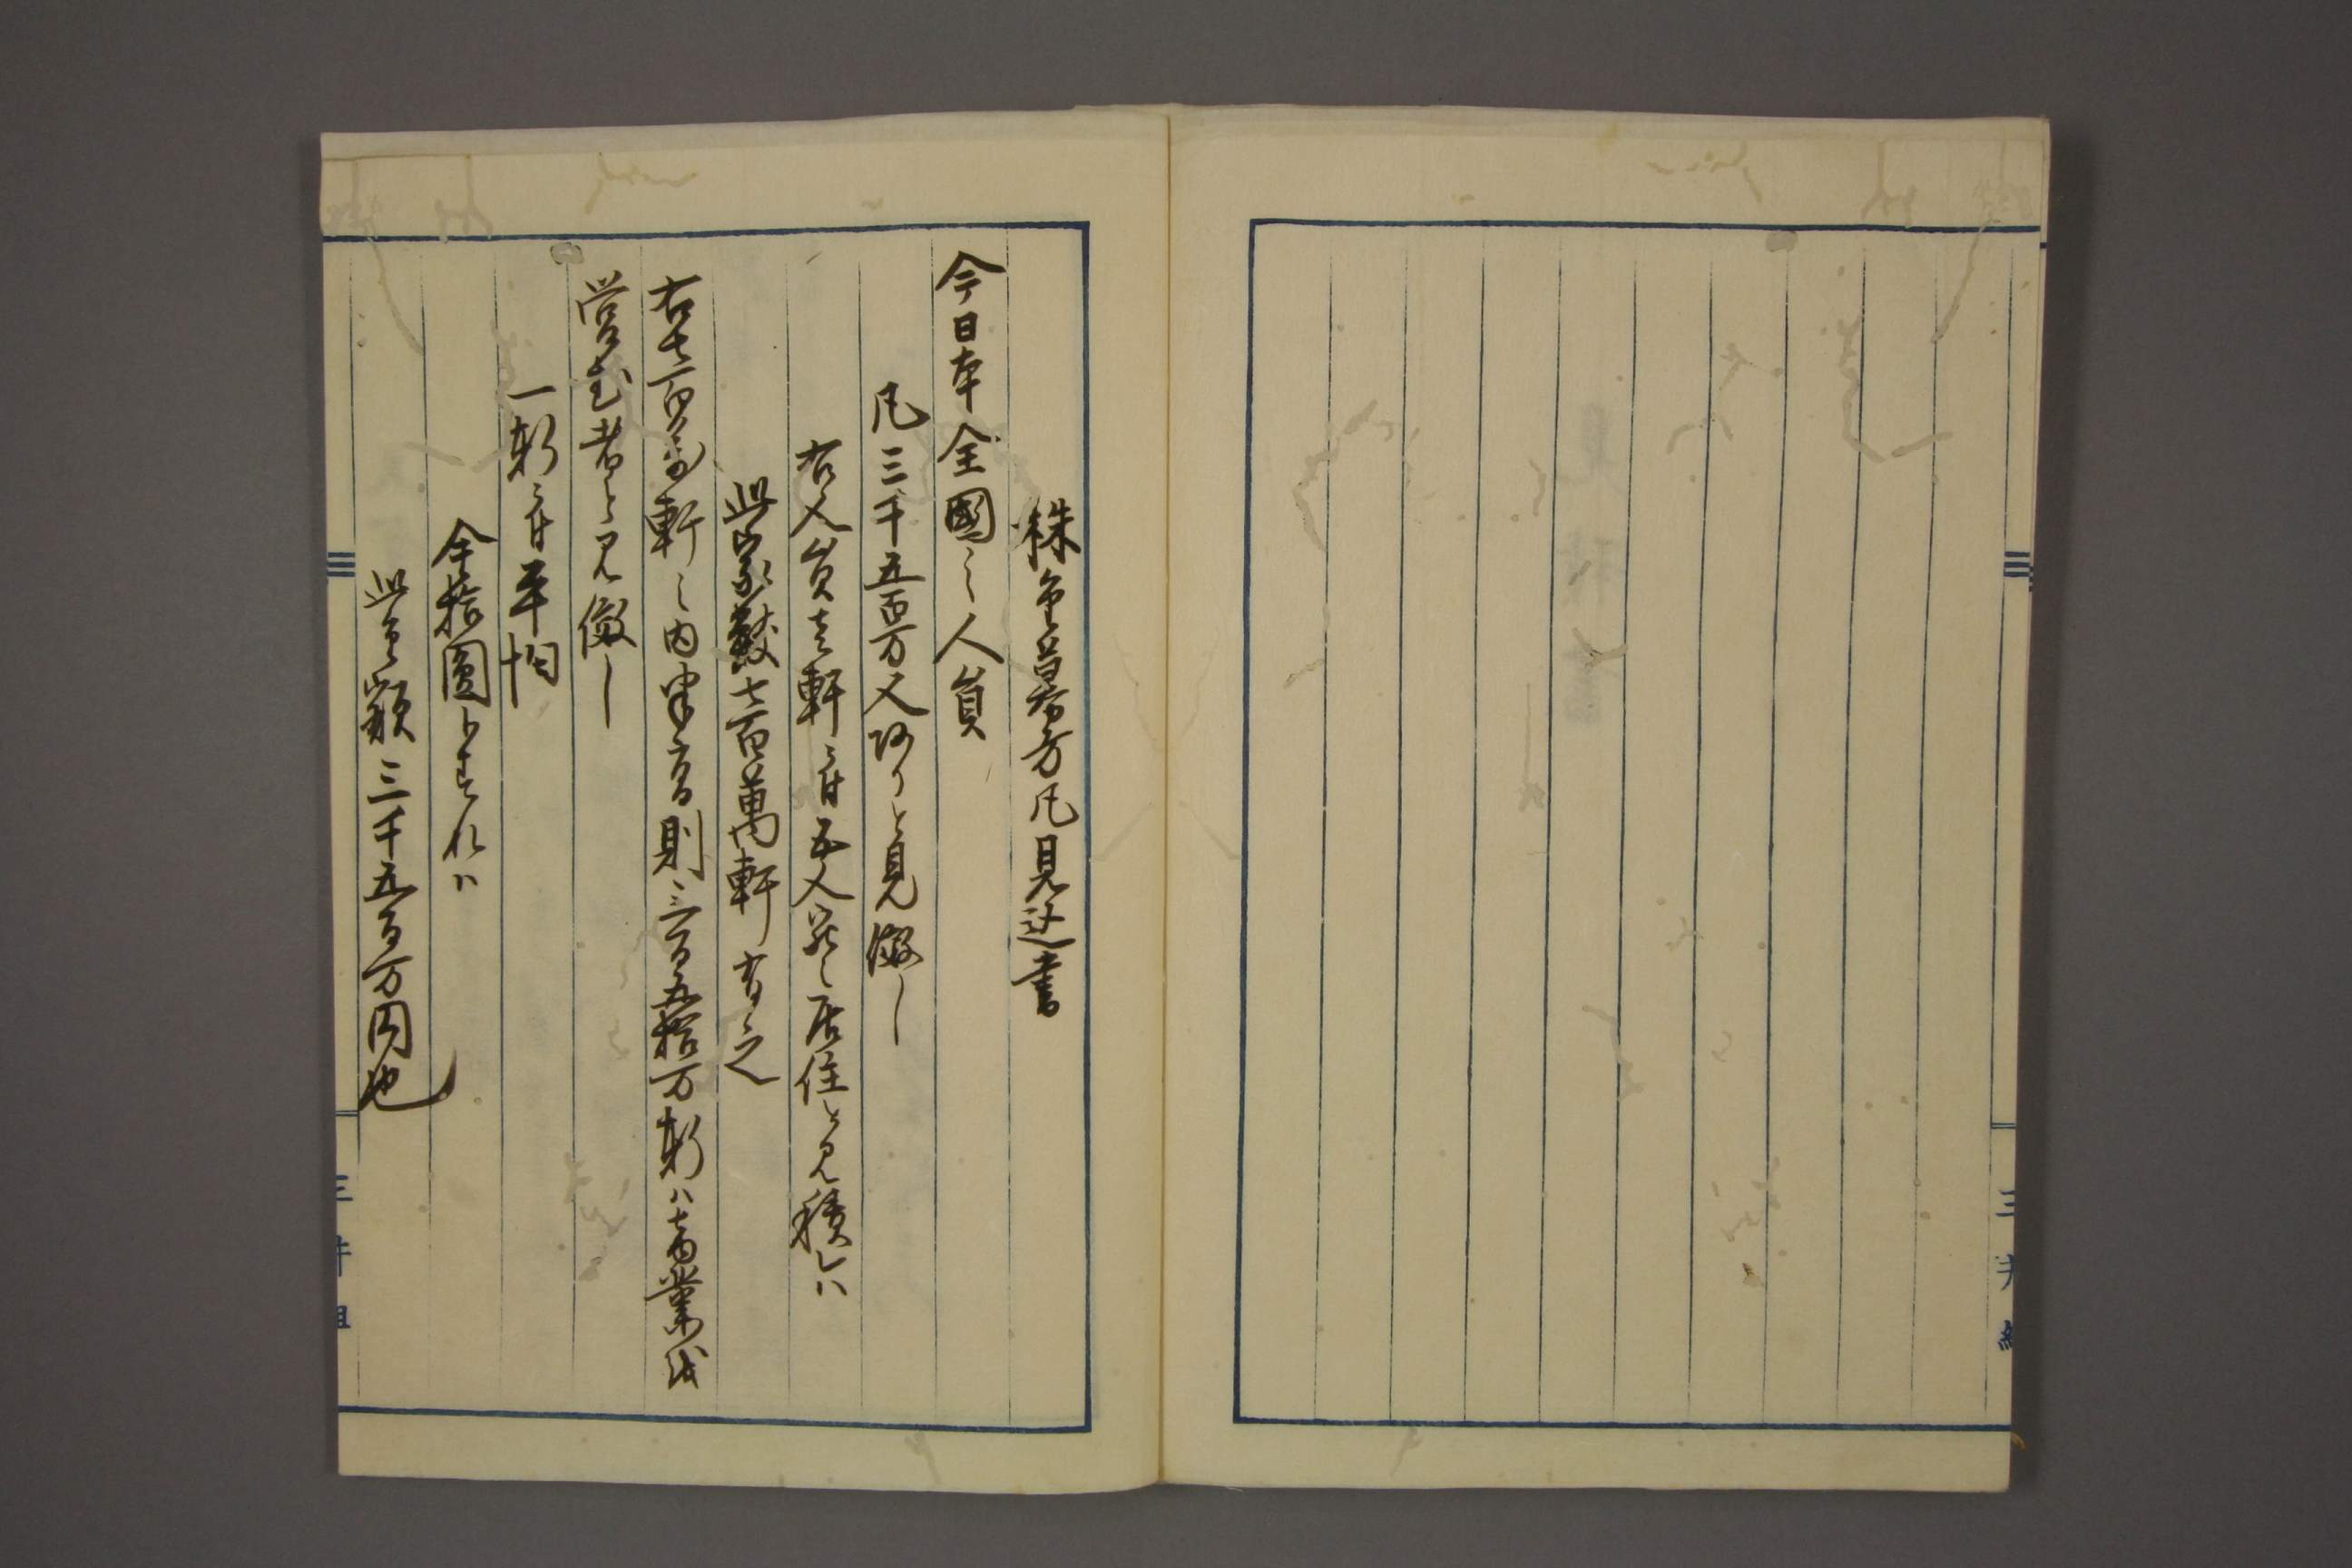 株金募方凡見込書
今日本全國之人員
凡三千五百万人阿りと見做し
右人員壱軒ニ付五人ツヽ居住と見積レハ
此家數七百萬軒有之
右七百万軒之内半方則三百五拾万軒ハ商業を
営む者と見做し
一軒ニ付平均
金拾圓トすれハ
此金額三千五百万円也
三井組
三井組